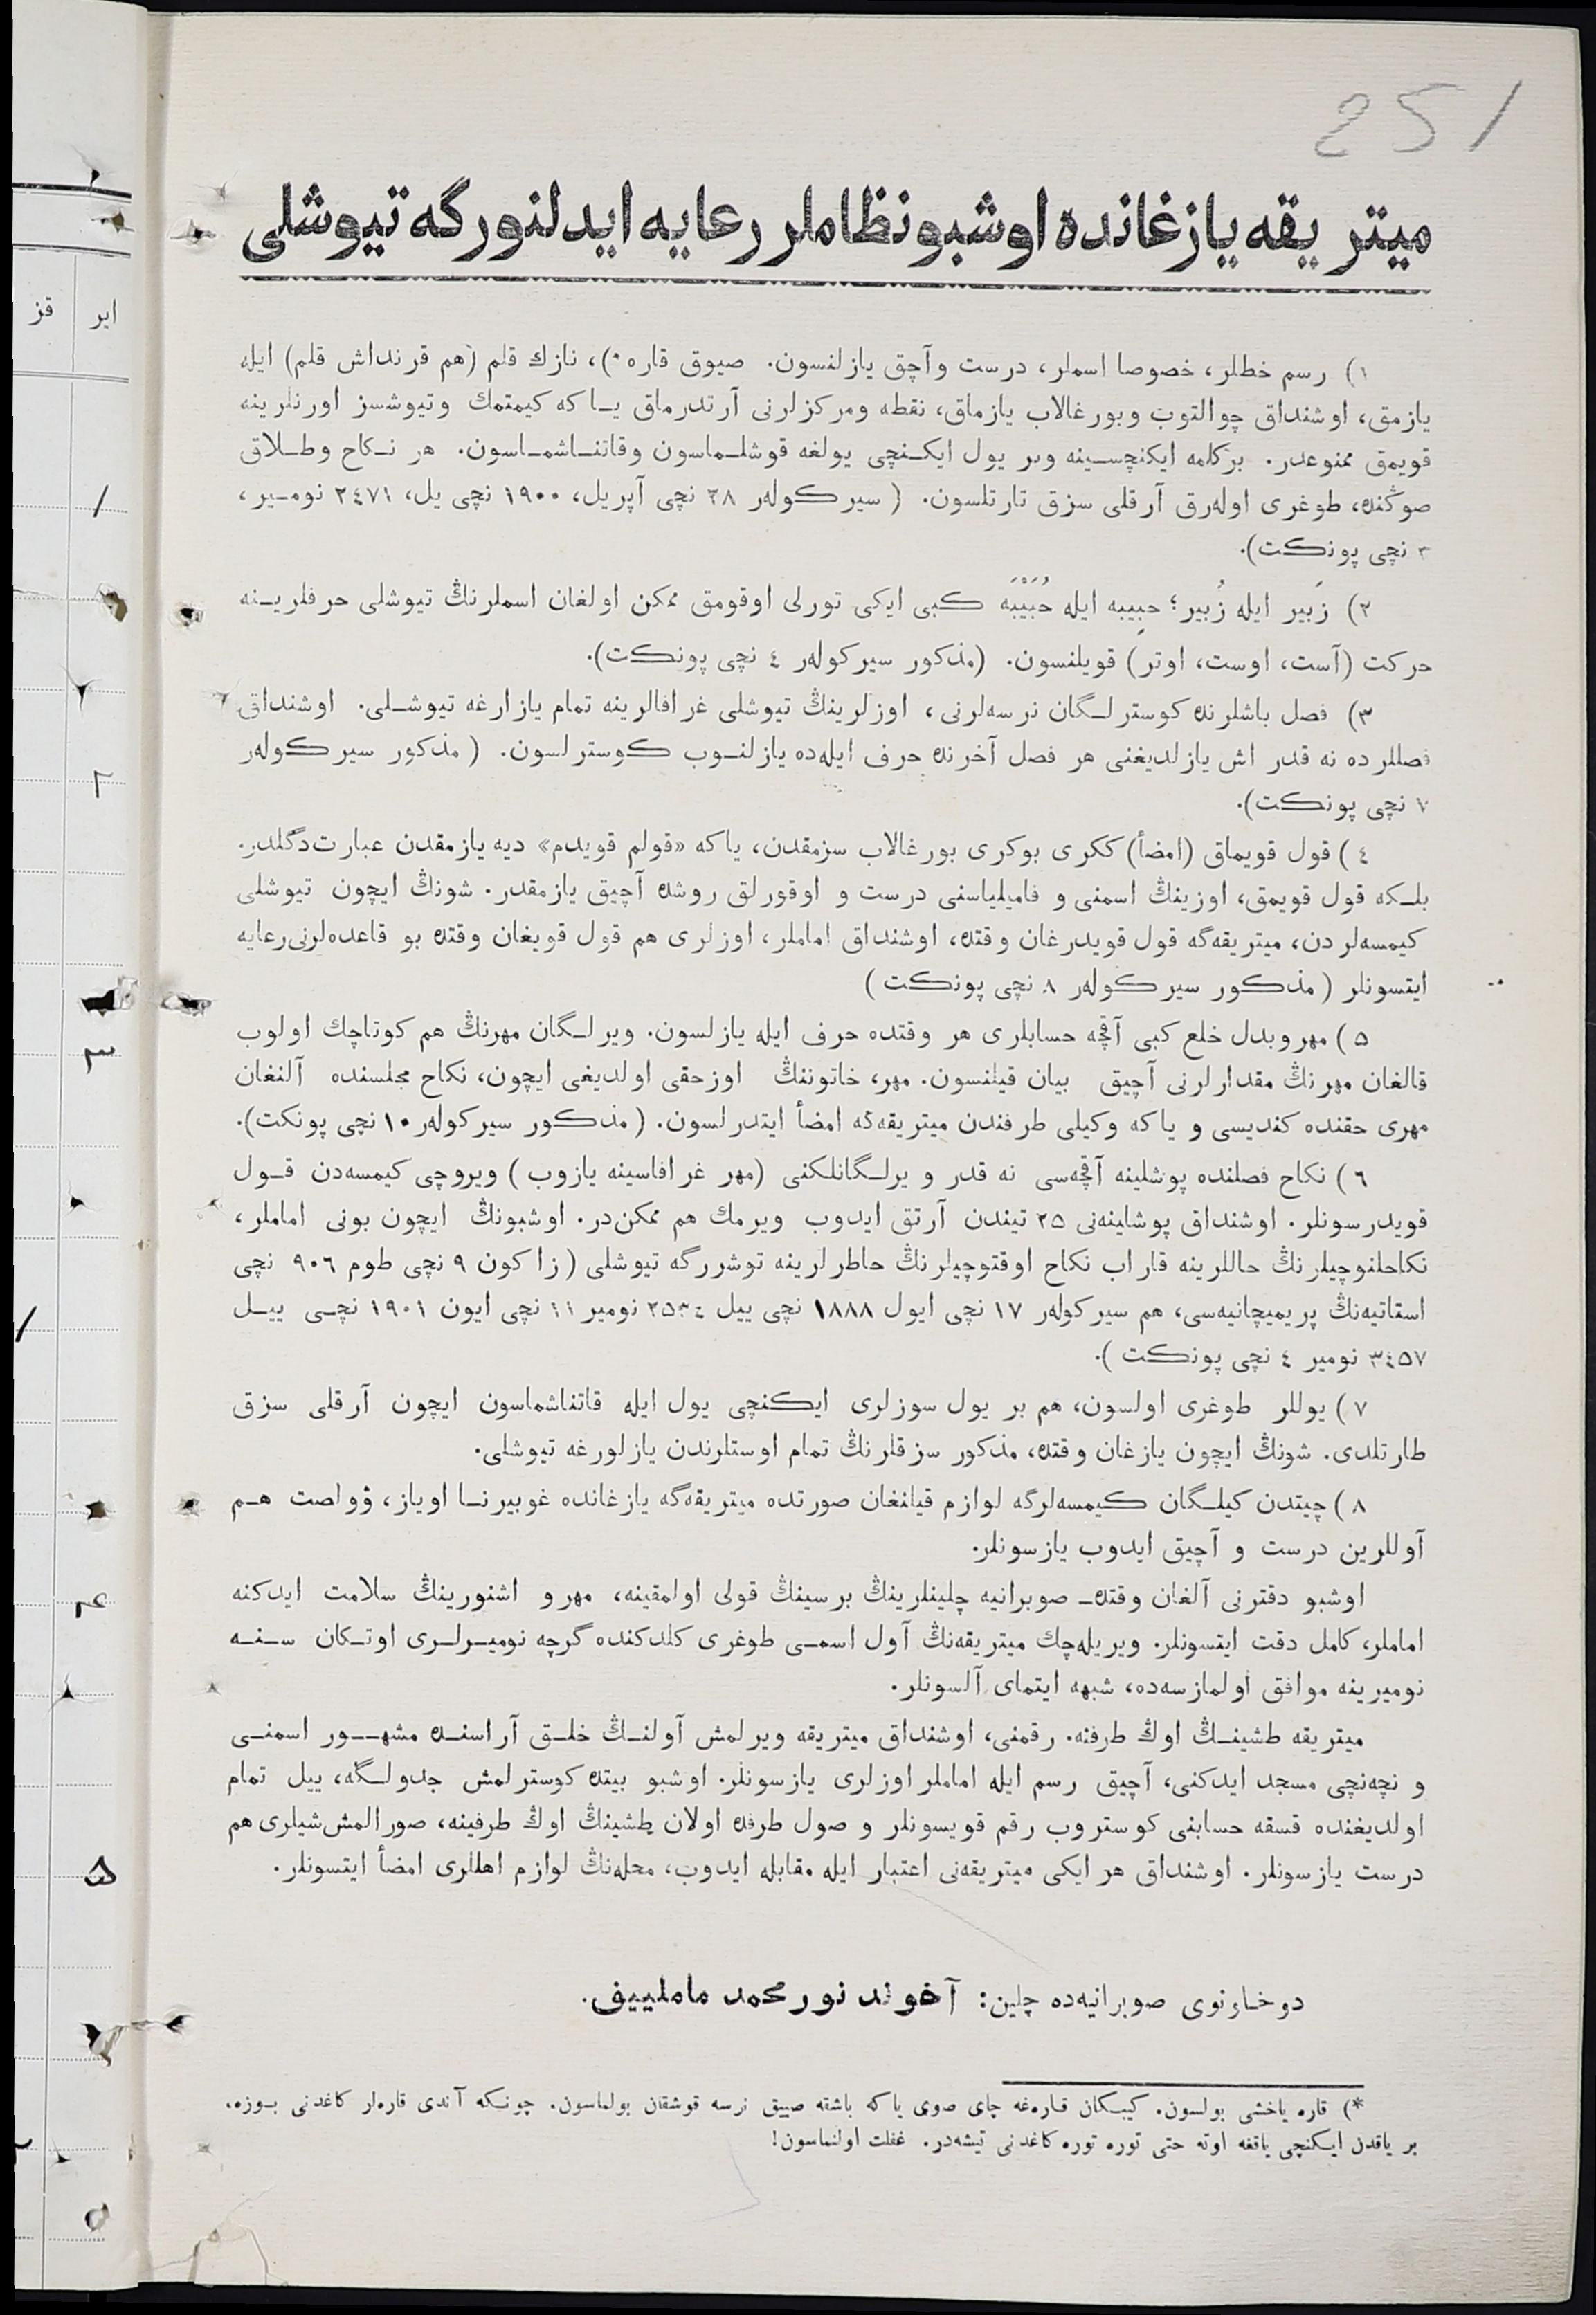 251
میتریقه یازغانده اوشبو نظاملر رعایه ایدلنورگه تیوشلی
١) رسم خطلر، خصوصا اسملر، درست وآچق یازلنسون. صیوق قاره *)، نازك قلم (هم قرنداش قلم) ایله
یازمق، اوشنداق چوالتوب وبورغالاب یازماق، نقطه ومرکزلرنی آرتدرماق یـا که کیمتمك وتیوشسز اورنلرینه
قویمق ممنوعدر. برکلمه ایکنچسـینه وبر یول ایکـنچی یولغه قوشلـماسون وقاتنـاشمـاسون. هر نـکاح وطـلاق
صوڭنده، طوغری اولهرق آرقلی سزق تارتلسون. (سیرکولهر ٢٨ نچی آپریل، ١٩٠٠ نچی یل، ٢٤٧١ نومـیر،
٣ نچی پونکت).
٢) زَبیر ایله زُبیر؛ حبِیبه ایله حُبَیْبَه کـبی ایکی تورلی اوقومق ممکن اولغان اسملرنڭ تیوشلی حرفلریـنه
حرکت (آست، اوست، اوتر) قویلنسون. (مذکور سیرکولهر ٤ نچی پونکت).
٣) فصل باشلرنده کوسترلـگان نرسهلرنی، اوزلرینڭ تیوشلی غرافالرینه تمام یازارغه تیوشـلی. اوشنداق
فصللرده نه قدر اش یازلدیغنی هر فصل آخرنده حرف ایلهده یازلنـوب کوسترلسون. (مذکور سیرکولهر
٧ نچی پونکت).
٤) قول قویماق (امضأ) ککری بوکری بورغالاب سزمقدن، یاکه «قولم قویدم» دیه یازمقدن عبارت دگلدر.
بلـکه قول قویمق، اوزینڭ اسمنی و فامیلیاسنی درست و اوقورلق روشده آچیق یازمقدر. شونڭ ایچون تیوشلی
کیمسهلردن، میتریقهگه قول قویدرغان وقتده، اوشنداق اماملر، اوزلری هم قول قویغان وقتده بو قاعدهلرنی رعایه
ایتسونلر (مذکور سیرکولهر ٨ نچی پونکت)
٥) مهر وبدل خلع کبی آقچه حسابلری هر وقتده حرف ایله یازلسون. ویرلـگان مهرنڭ هم کوتاچك اولوب
قالغان مهرنڭ مقدارلرنی آچیق بیان قیلنسون. مهر، خاتوننڭ اوزحقی اولدیغی ایچون، نکاح مجلسنده آلنغان
مهری حقنده کندیسی و یاکه وکیلی طرفندن میتریقهگه امضأ ایتدرلسون. (مذکور سیرکولهر ١٠ نچی پونکت).
٦) نکاح فصلنده پوشلینه آقچهسی نه قدر و یرلـگانلکنی (مهر غرافاسینه یازوب) ویروچی کیمسهدن قـول
قویدرسونلر. اوشنداق پوشلینهنی ٢٥ تیندن آرتق ایدوب ویرمك هم ممکن در. اوشبونڭ ایچون بونی اماملر،
نکاحلنوچیلرنڭ حاللرینه قاراب نکاح اوقتوچیلرنڭ خاطرلرینه توشررگه تیوشلی (زاکون ٩ نچی طوم ٩٠٦ نچی
استاتیهنڭ پریمیچانیهسی، هم سیرکولهر ١٧ نچی ایول ١٨٨٨ نچی ییل ٢٥٣٤ نومیر ١١ نچی ایون ١٩٠١ نچـی ییـل
٣٤٥٧ نومیر ٤ نچی پونکت).
٧) یوللر طوغری اولسون، هم بر یول سوزلری ایکنچی یول ایله قاتناشماسون ایچون آرقلی سزق
طارتلدی. شونڭ ایچون یازغان وقتده، مذکور سزقلرنڭ تمام اوستلرندن یازلورغه تیوشلی.
٨) چیتدن کیلـگان کیمسهلرگه لوازم قیلنغان صورتده میتریقهگه یازغانده غوبیرنـا اویاز، ؤولصت هـم
آوللرین درست و آچیق ایدوب یازسونلر.
اوشبو دفترنی آلغان وقتده ـ صوبرانیه چلینلرینڭ برسینڭ قولی اولمقینه، مهرو اشنورینڭ سلامت ایدکنه
اماملر، کامل دقت ایتسونلر. ویریلهچك میتریقهنڭ آول اسمـی طوغری کلدکنده گرچه نومیـرلـری اوتـکان سـنـه
نومیرینه موافق اولمازسهده، شبهه ایتمای آلسونلر.
میتریقه طشینـڭ اوڭ طرفنه. رقمنی، اوشنداق میتریقه ویرلمش آولنـڭ خلـق آراسنـده مشهـور اسمنـی
و نچهنچی مسجد ایدکنی، آچیق رسم ایله اماملر اوزلری یازسونلر. اوشبو بیتده کوسترلمش جدولـگه، ییل تمام
اولدیغنده قسقه حسابنی کوستروب رقم قویسونلر و صول طرفده اولان طشینڭ اوڭ طرفینه، صورالمش شیلری هم
درست یازسونلر. اوشنداق هر ایکی میتریقهنی اعتبار ایله مقابله ایدوب، محلهنڭ لوازم اهللری امضأ ایتسونلر.
دوخاونوی صوبرانیهده چلین: آخوند نورمحمد ماملییف.
*) قاره یاخشی بولسون. کیبـکان قـارهغه چای صوی یاکه باشقه صییق نرسه قوشقان بولماسون. چونـکه آندی قارهلر کاغدنی بـوزه،
بر یاقدن ایـکنچی یاقغه اوته حتی توره توره کاغدنی تیشهدر. غفلت اولنماسون!
ایر
قز
١
٢
٣
٤
٥